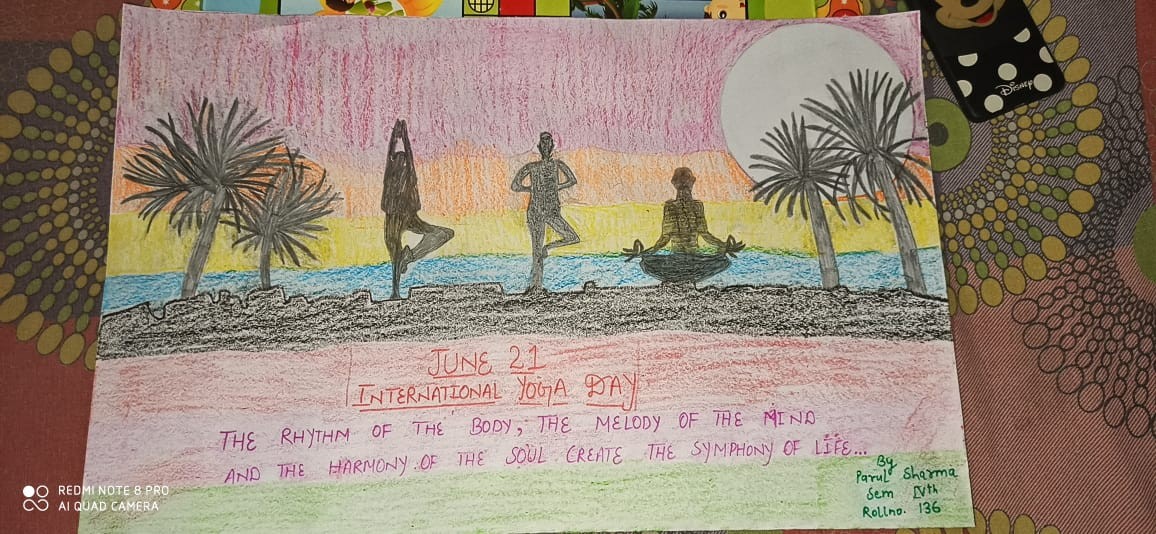 Disney
JUNE 21
INTERNATIONAL YOGA DAY
THE RHYTHM OF THE BODY, THE MELODY OF THE MIND
AND THE HARMONY OF THE SOUL CREATE THE SYMPHONY OF LIFE...
By
Parul Sharma
Sem IVth
Rollno. 136
REDMI NOTE 8 PRO
AI QUAD CAMERA